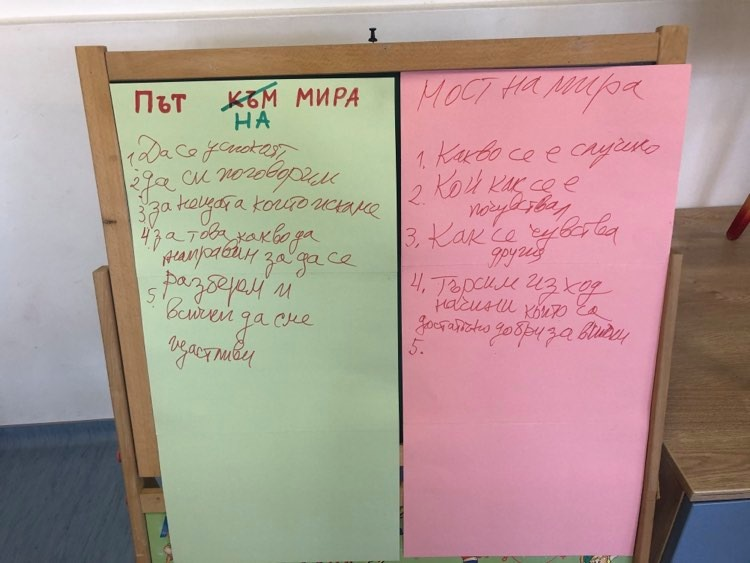 ПЪТ КЪМ МИРА
НА
1. Да се успокоят
2. да си поговорим
3. за нещата които искаме
4. за това какво да
направим за да се
разберем и
5. всички да сме
щастливи
Мост на мира
1. Какво се е случило
2. Кой как се е
почувствал
3. Как се чувства
другия
4. Търсим изход
начини които са
достатъчно добри за всички
5.